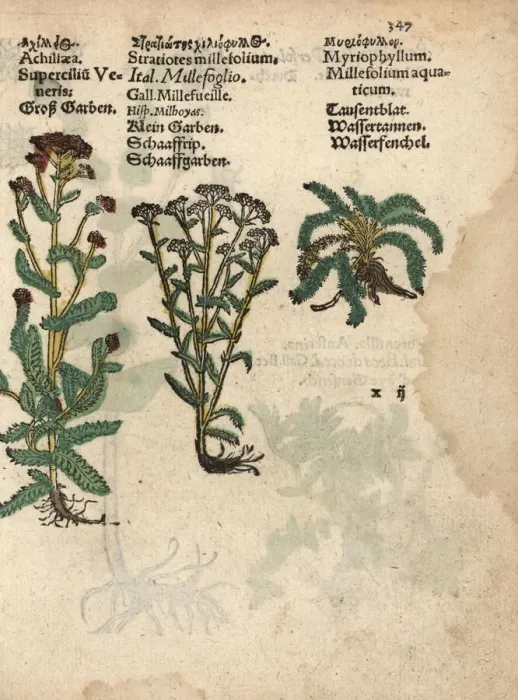 347
Ἀχίλλειος.
Achiliæa.
Superciliū Ve-
neris:
Groß Garben.
Στρατιώτης χιλιόφυλλος.
Stratiotes millefolium.
Ital. Millefoglio.
Gall. Millefueille.
Hisp. Milhoyas.
Klein Garben.
Schaaffrip.
Schaaffgarben.
Μυριόφυλλον.
Myriophyllum.
Millefolium aqua-
ticum.
Tausentblat.
Wassertannen.
Wasserfenchel.
x ij